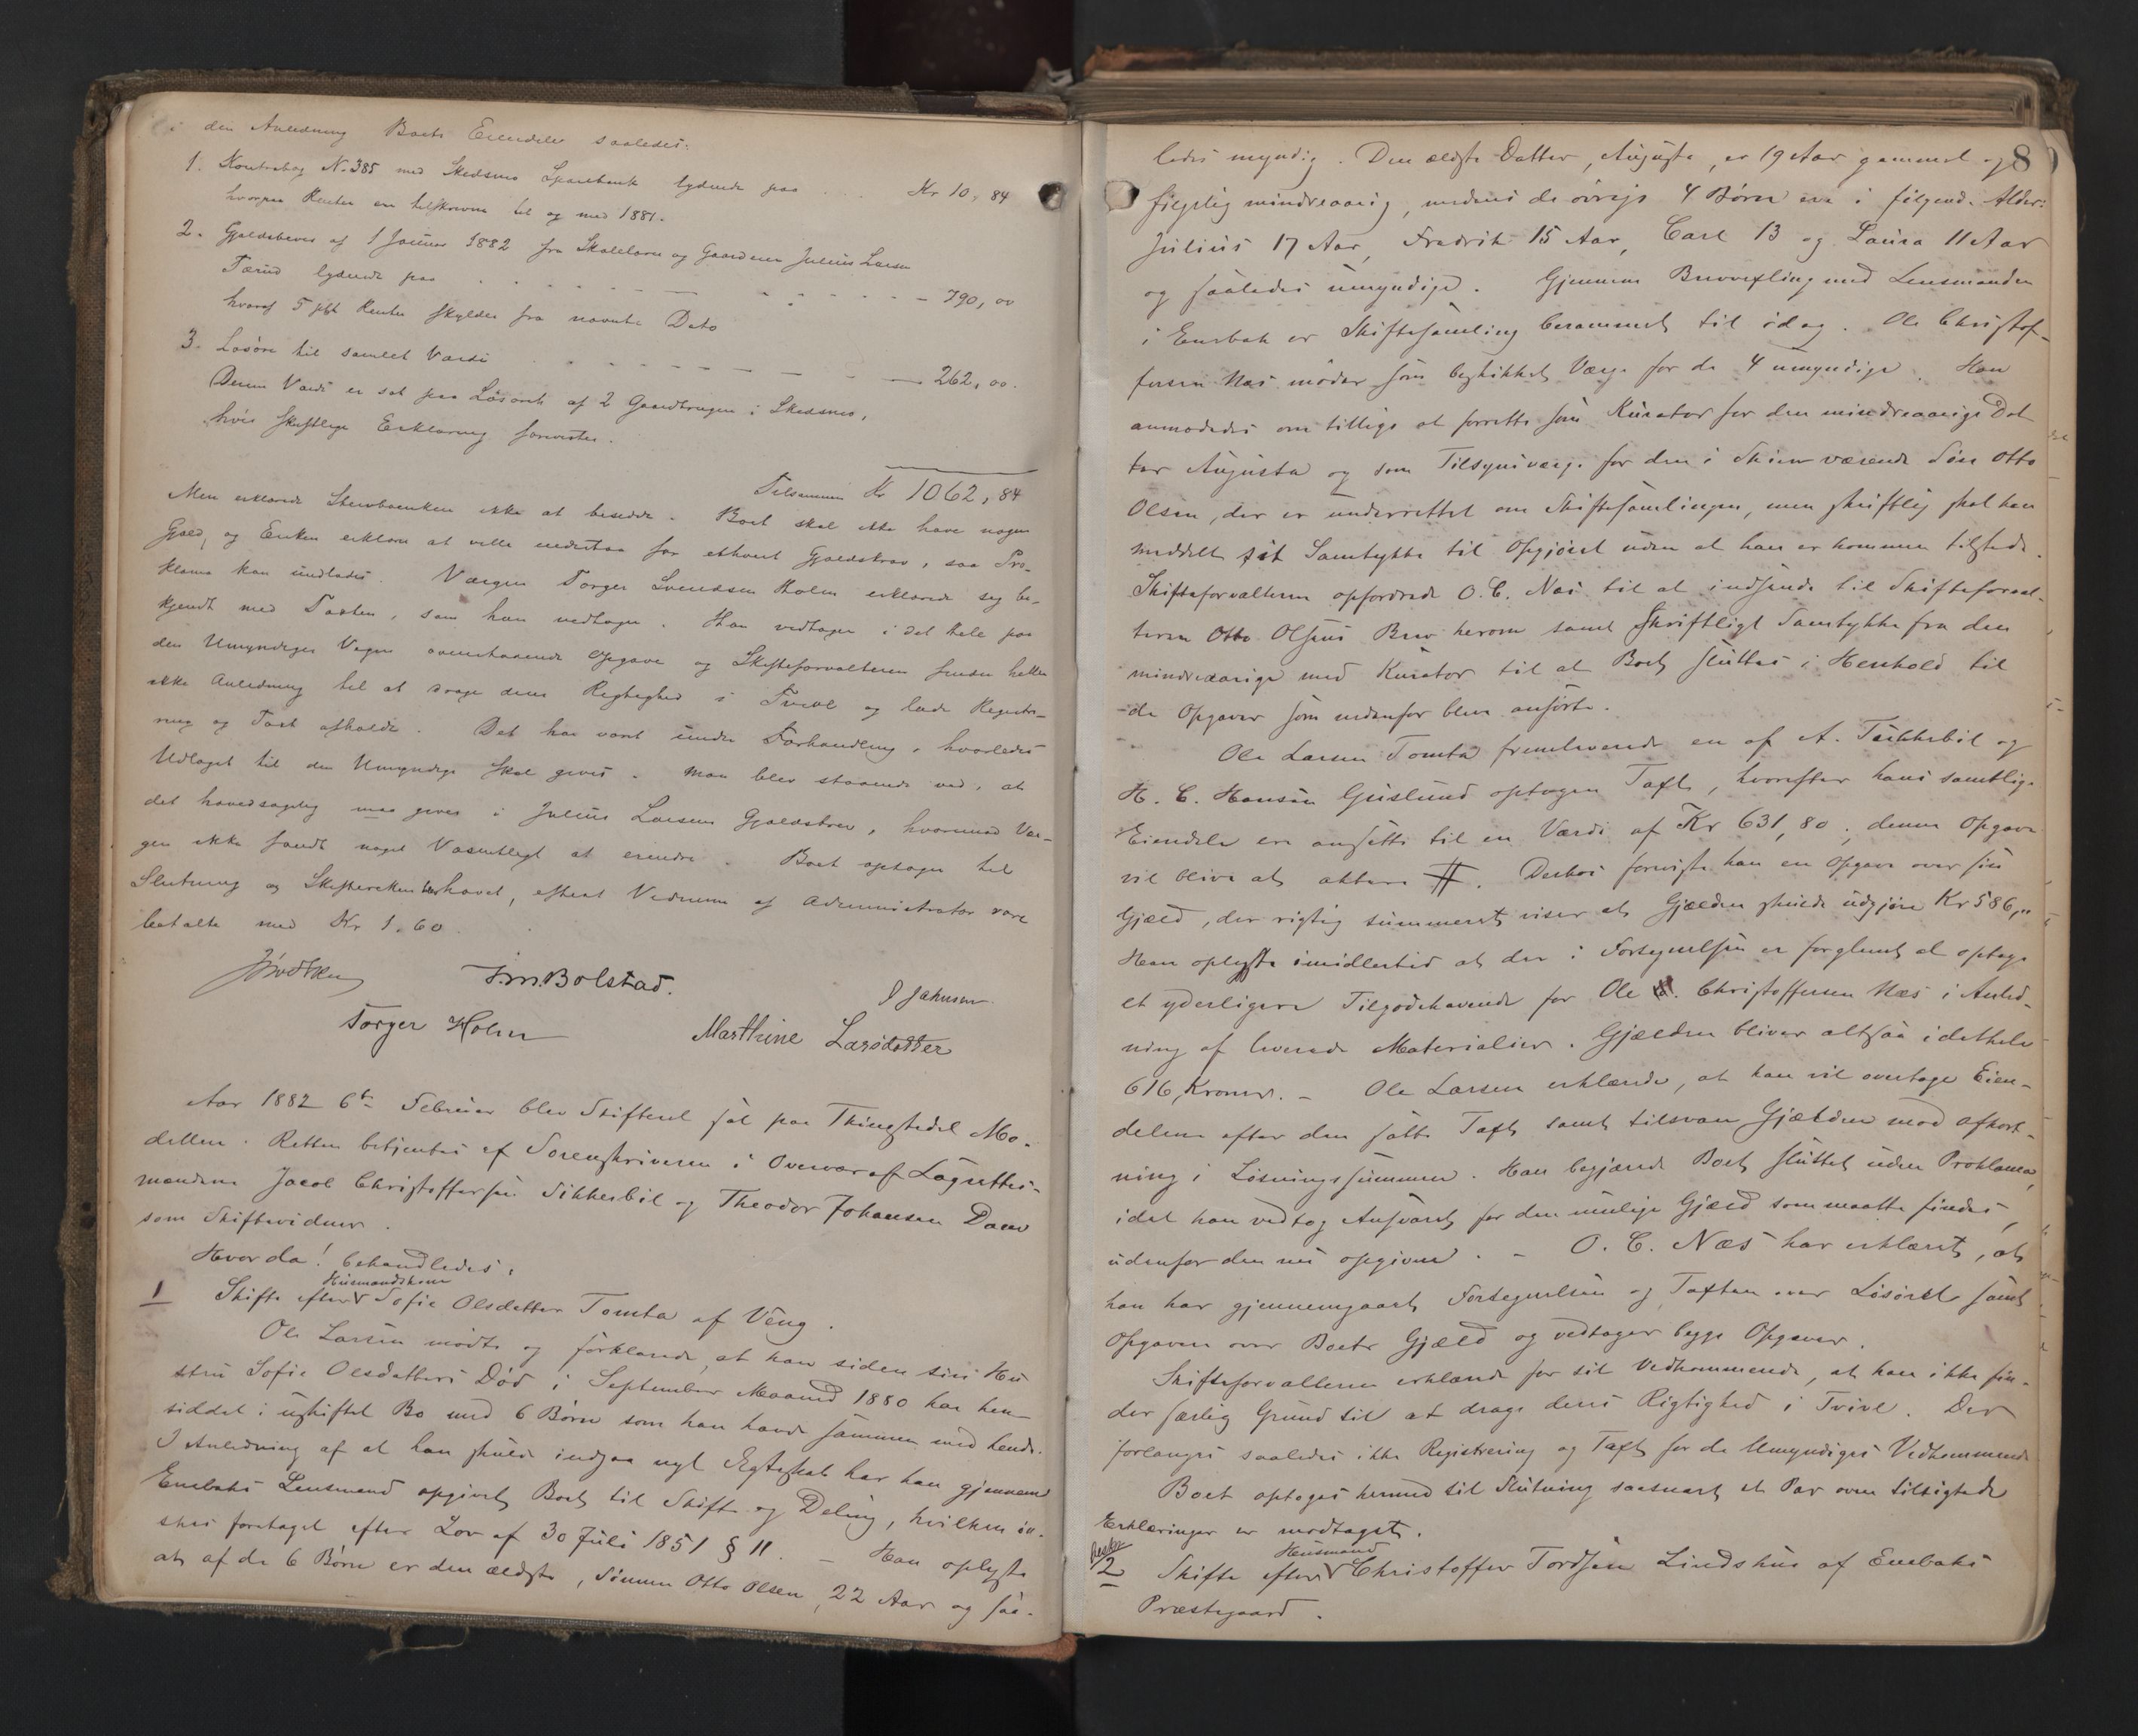 i den Anledning Boets Eiendele saaledes:
1. Kontrabog N. 385 med Skedsmo Sparebank lydende paa . . . Kr 10, 84
hvorpaa Renter ere tilskrevne til og med 1881.
2. Gjeldsbevis af 1 Januar 1882 fra Skolelærer og Gaardener Julius Larsen
Tærud lydende paa . . . . . . . . . . . . 790, 00
hvoraf 5 pCt Renter skyldes fra nævnte Dato
3. Løsøre til samlet Værdi . . . . . . . 262, 00.
Denne Værdi er sat paa Løsøret af 2 Gaardbrugere i Skedsmo,
hvis skriftlige Erklæring forevistes.
Tilsammen Kr 1062, 84
Mere erklærede Stervboenken ikke at besidde. Boet skal ikke have nogen
Gjeld, og Enken erklærer at ville indestaa for ethvert Gjældskrav, saa Pro-
klama kan undlades. Værgen Torger Svendsen Holm erklærede sig be-
kjendt med Taxten, som han vedtager. Han vedtager i det hele paa
den Umyndiges Vegne ovenstaaende Opgave og Skifteforvalteren finder heller
ikke Anledning til at drage dens Rigtighed i Tvivl og lade Registre-
ring og Taxt afholde. Det har været under Forhandling, hvorledes
Udlæget til den Umyndige skal gives. Man blev staaende ved, at
det hovedsagelig maa gives i Julius Larsens Gjældsbrev, hvorimod Vær-
gen ikke fandt noget Væsentligt at erindre. Boet optages til
Slutning og Skifteretten hævet, efterat Vidnerne af Administrator vare
betalte med Kr 1.60.
J.M. Bolstad.
J Johnsen
Torger Holm Marthine Larsdatter
Aar 1882 6te Februar blev Skifteret sat paa Thingstedet Mo-
dellen. Retten betjentes af Sorenskriveren i Overvær af Lagrettes-
mændene Jacob Christoffersen Sikkerbøl og Theodor Johansen Dam
som Skiftevidner.
Hvor da! behandledes:
1 Skifte efter Husmandskone Sofie Olsdatter Tomta af Veng.
Ole Larsen mødte og forklarede, at han siden sin Hu
stru Sofie Olesdatters Død i September Maaned 1880 har hen-
siddet i uskiftet Bo med 6 Børn som han havde sammen med hende.
I Anledning af at han skulde indgaa nyt Ægteskab har han gjennem
Enebaks Lensmand opgivet Boet til Skifte og Deling, hvilken øn-
skes foretaget efter Lov af 30 Juli 1851 § 11. – Han oplyste
at af de 6 Børn er den ældste, Sønnen Otto Olsen, 22 Aar og saa-
8
ledes myndig. Den ældste Datter, Augusta, er 19 Aar gammel og
følgelig mindreaarig, medens de øvrige 4 Børn ere i følgende Alder:
Julius 17 Aar, Fredrik 15 Aar, Carl 13 og Laura 11 Aar
og saaledes umyndige. Gjennem Brevvexling med Lensmanden
i Enebak er Skiftesamling berammet til idag. Ole Christof-
fersen Næs møder som beskikket Værge for de 4 umyndige. Han
anmodedes om tillige at forrette som Kurator for den mindreaarige Dat
ter Augusta og som Tilsynsværge for den i Skien værende Søn Otto
Olsen, der er underrettet om Skiftesamlingen, men skriftlig skal have
meddelt sit Samtykke til Opgjøret uden at han er kommen tilstede.
Skifteforvalteren opfordrede O. C. Næs til at indsende til Skifteforval-
teren Otto Olsens Brev herom samt skriftligt Samtykke fra den
mindreaarige med Kurator til at Boet sluttes i Henhold til
de Opgaver som nedenfor blive anførte.
Ole Larsen Tomta fremleverede en af A. Tukkebøl og
H. C. Hansen Gjislund optagen Taxt, hvorefter hans samtlige
Eiendele ere ansatte til en Værdi af Kr 631,80; denne Opgave
vil blive at aktere #. Derhos foreviste han en Opgave over sin
Gjæld, der rigtig summeret viser at Gjælden skulde udgjøre Kr 586,"
Han oplyste imidlertid at der i Fortegnelsen er forglemt at optage
et yderligere Tilgodehavende for Ole Christoffersen Næs i Anled-
ning af leverede Materialier. Gjælden bliver altsaa idethele
616, Kroner. – Ole Larsen erklærede, at han vil overtage Eien-
delene efter den satte Taxt samt tilsvare Gjælden mod afkort-
ning i Løsningssummen. Han begjærede Boet sluttet uden Proklama,
idet han vedtog Ansvaret for den mulige Gjæld som maatte findes,
udenfor den nu opgivne. – O. C. Næs har erklæret, at
han har gjennemgaaet Fortegnelsen og Taxten over Løsøret samt
Opgaven over Boets Gjæld og vedtager begge Opgaver.
Skifteforvalteren erklærede for sit Vedkommende, at han ikke fin-
der særlig Grund til at drage deres Rigtighed i Tvivl. Der
forlanges saaledes ikke Registrering og Taxt for de Umyndiges Vedkommende
Boet optoges hermed til Slutning saasnart et Par oven tilsigtede
Erklæringer er modtaget.
2 Skifte efter Husmand Christoffer Tordsen Lindshus af Enebaks
Præstegaard.